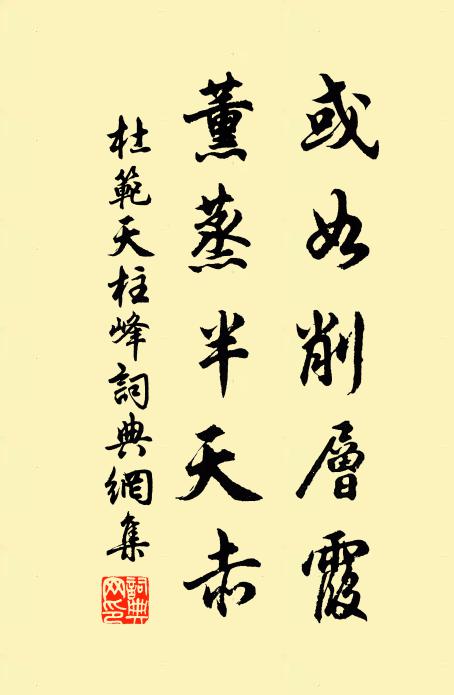 或如削層霞
薰蒸半天赤
杜範天柱峰詞典網集
詞典網印